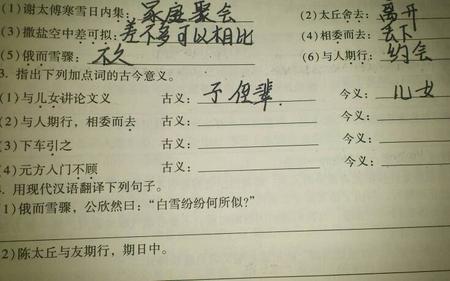 (1)谢太傅寒雪日内集:家庭聚会 (2)太丘舍去:离开
(3)撒盐空中差可拟:差不多可以相比 (4)相委而去:丢下
(5)俄而雪骤:不久 (6)与人期行:约会
3. 指出下列加点词的古今意义。
(1)与儿女讲论文义 古义:子侄辈 今义:儿女
(2)与人期行,相委而去 古义: 今义:
(3)下车引之 古义: 今义:
(4)元方入门不顾 古义: 今义:
4. 用现代汉语翻译下列句子。
(1)俄而雪骤,公欣然曰:“白雪纷纷何所似?”
(2)陈太丘与友期行,期日中。